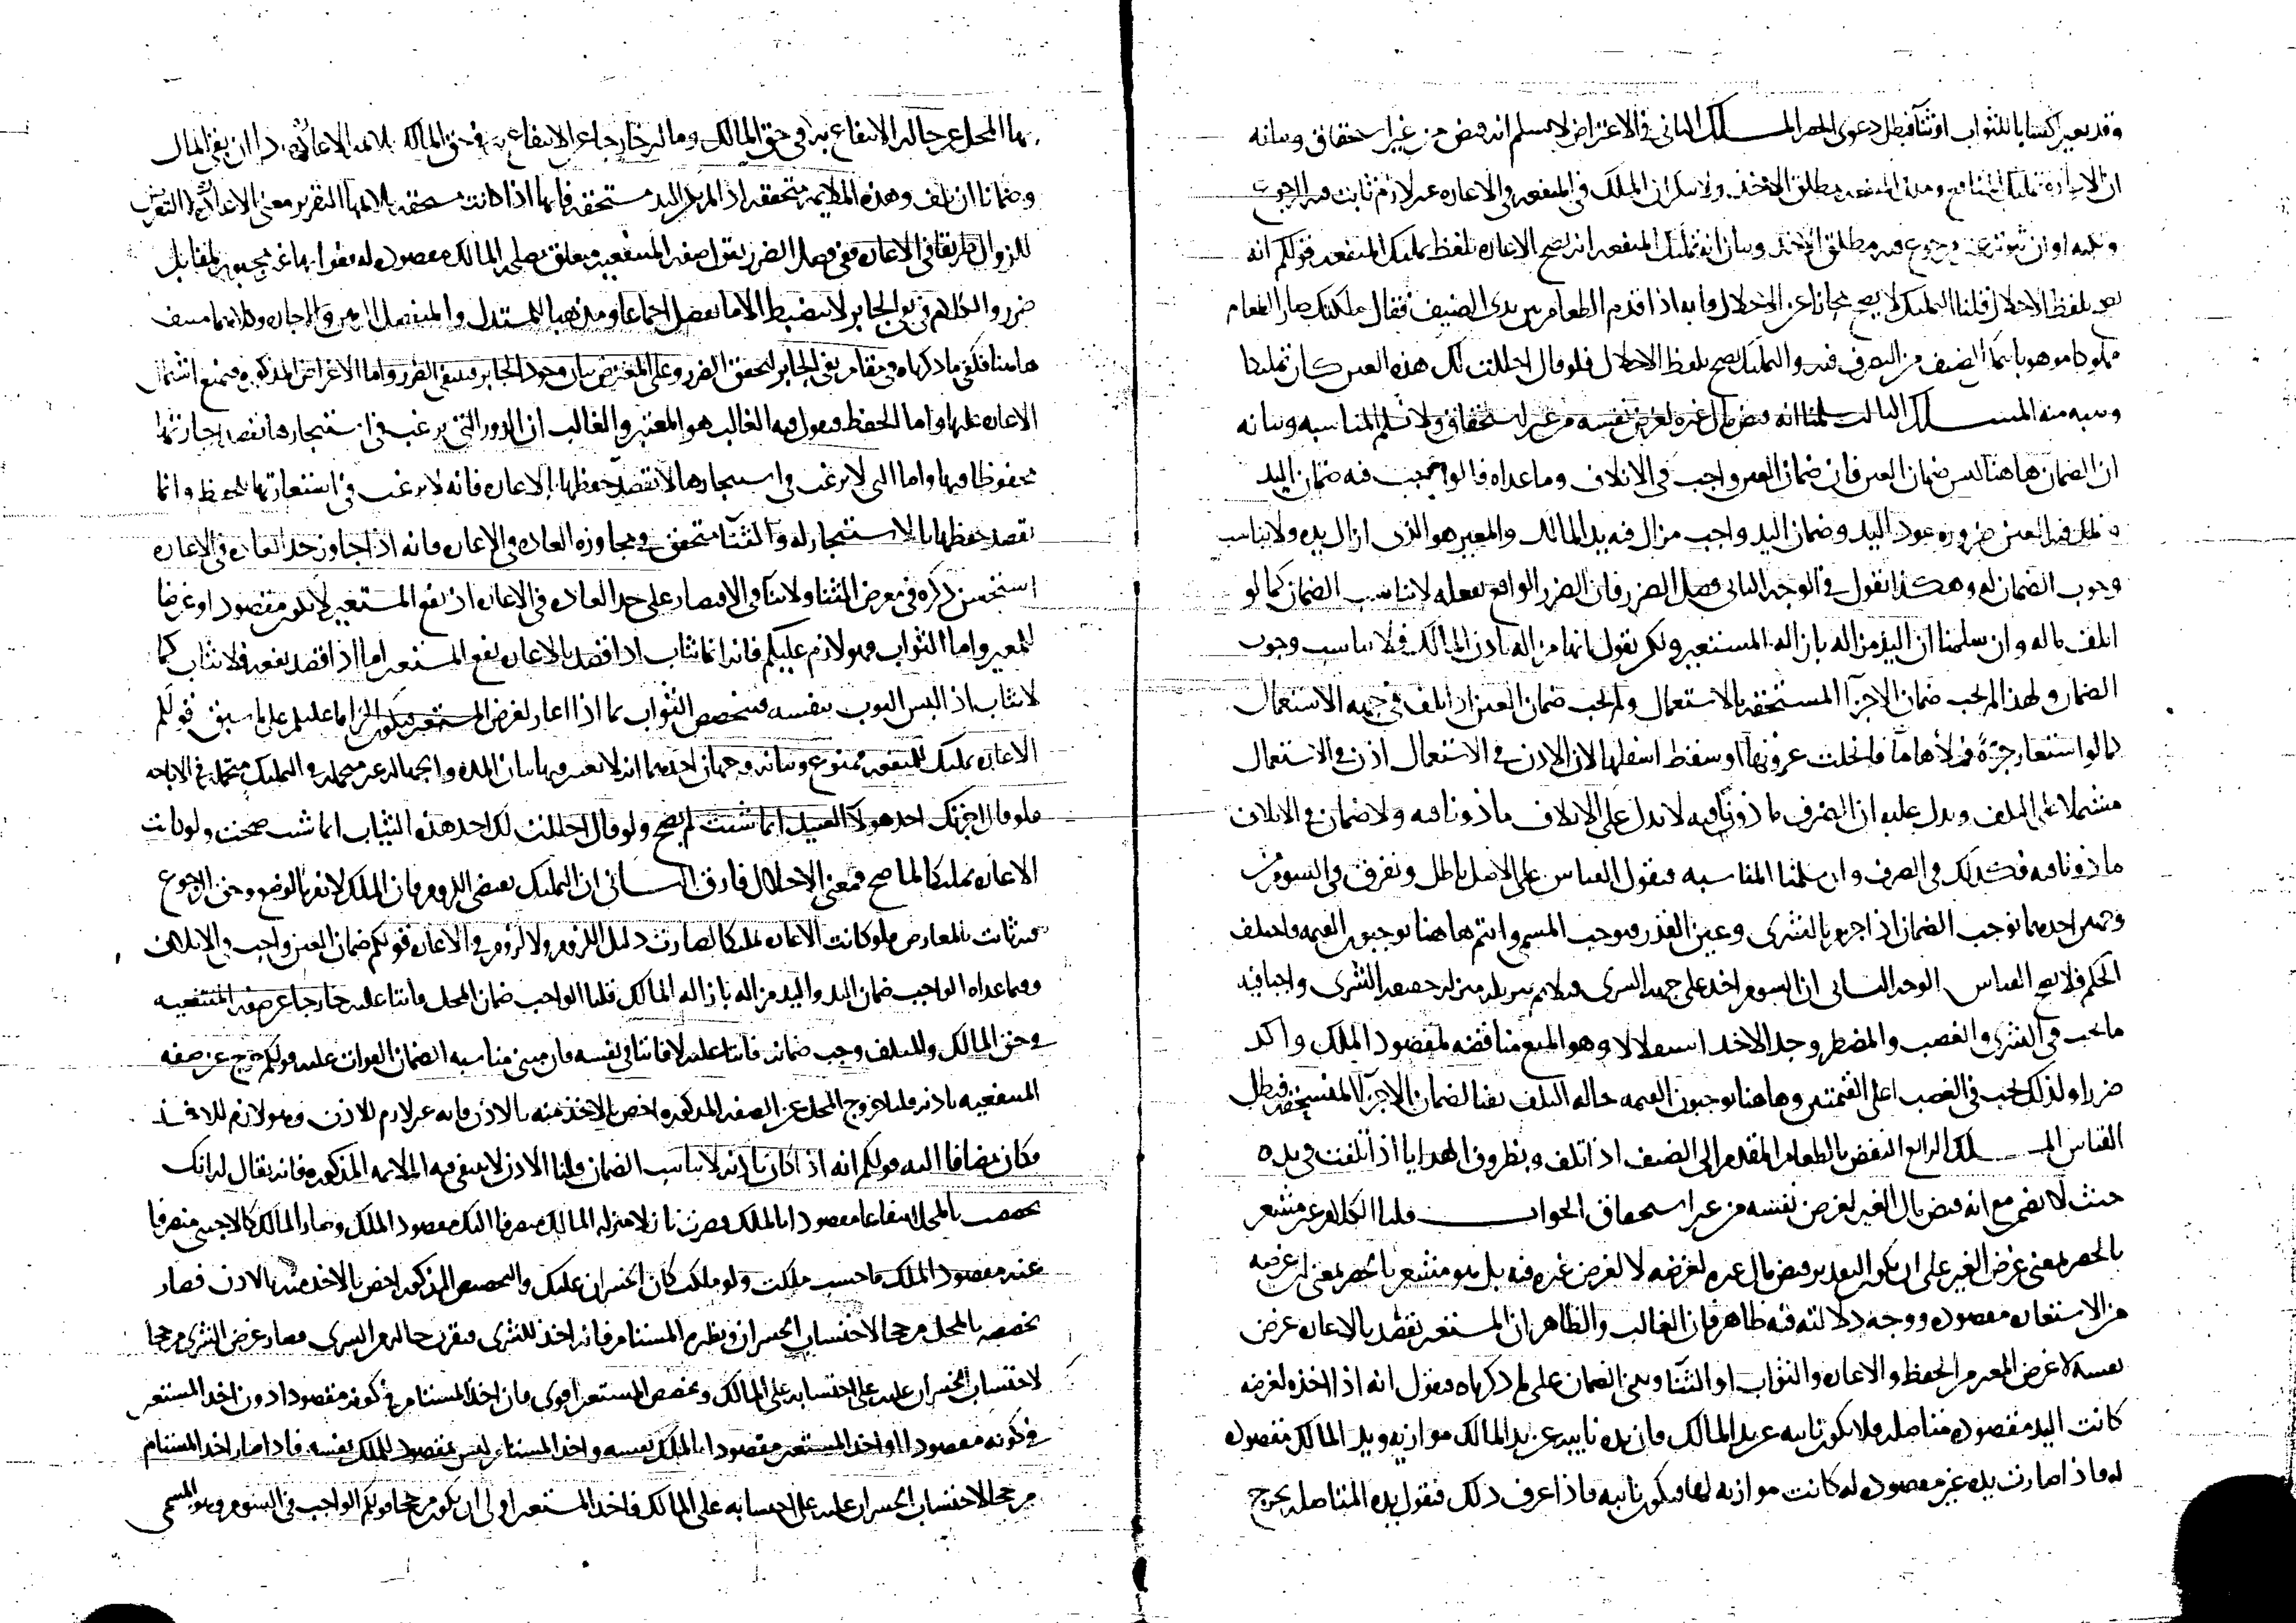 وقد يعير اكتسابا للثواب او ثنآ فبطل دعوى الحصر المسلك الثاني في الاعتراض لا نسلم انه قبض من غير استحقاق وبيانه
ان الاعارة تمليك المنافع وملك المنفعه مطلق الاخذ ولا ينكر ان الملك في المنفعه في الاعاره غير لازم ثابت فيه الرجوع
مطلق الاخذ وبيان انه تمليك المنفعه انه يصح الاعاره بلفظ تمليك المنفعه قولكم انه
يصح بلفظ الاحلال قلنا التمليك لا يصح مجازا عن الاحلال فانه اذا قدم الطعام بين يدى الضيف فقال ملكتك صار الطعام
مملوكا موهوبا الضيف من التصرف فيه والتمليك يصح بلفظ الاحلال فلو قال احللت لك هذه العين كان تمليكا
وهبه منه المسلك الثالث سلمنا انه قبض مال غيره لغرض نفسه من غير استحقاق ولا نسلم المناسبه وبيانه
ان الضمان هاهنا ليس ضمان العين فان ضمان العين واجب في الاتلاف وما عداه فالواجب فيه ضمان اليد
العين ضروره عود اليد وضمان اليد واجب من ال فيه يد المالك والمعير هو الذى ازال يده ولا يناسب
وجوب الضمان له وهكذا نقول في الوجه الثاني فصل الضرر فان الضرر الواقع بفعله لا يناسب الضمان كما لو
اتلف ماله وان سلمنا ان اليد مزاله بازاله المستعير ولكن نقول انها مزاله باذن المالك فلا يناسب وجوب
الضمان ولهذا لم يجب ضمان الاجزآ المستحقه بالاستعمال ولم يجب ضمان العين اذا تلف في جهه الاستعمال
كما لو استعار جرّةً فملأها مآ فانحلت عروتها او سقط اسفلها لان الاذن في الاستعمال اذن في الاستعمال
مشتملا على التلف ويدل عليه ان التصرف ماذونا فيه لا يدل على الاتلاف ماذونا فيه ولا ضمان في الاتلاف
ماذونا فيه فكذلك في الصرف وان سلمنا المناسبه فنقول القياس على الاصل باطل ونفرق في السوم من
وجهين احدهما نوجب الضمان اذا جرى بالشرى وعين القدر فنوجب المسمى وانتم هاهنا توجبون القيمه واختلف
الحكم فلا يصح القياس الوجه الثاني ان السوم اخذ على جهه الشرى فلا ينزل منزله حقيقه الشرى واجبا فيه
ما يجب في الشرى والغصب والمضطر وجد الاخذ استقلالا وهو المنع مناقضه لمقصود الملك واكد
ضررا ولذلك يجب في الغصب اعلى القيمتين وهاهنا توجبون القيمه حاله التلف نفيا لضمان الاجزآ المستحقه فبطل
القياس المسلك الرابع النقض بالطعام المقدم الى الضيف اذا تلف وبظروف الهدايا اذا تلفت في يده
حيث لا يضمن مع انه قبض مال الغير لغرض نفسه من غير استحقاق الجواب قلنا الكلام غير مشعر
بالحصر بمعنى غرض الغير على ان يكون التقدير قبض مال غيره لغرضه لا لغرض غيره فيه بل هو مشعر بالحصر بمعنى ان غرضه
من الاستعاره مقصوده ووجه دلالته فيه ظاهر فان الغالب والظاهر ان المستعير يقصد بالاعاره غرض
نفسه لا غرض المعير من الحفظ والاعاره والثواب او الثنآ وبنى الضمان على ما ذكرناه فنقول انه اذا اخذه لغرضه
كانت اليد مقصوده متاصله فلا يكون نايبه عن يد المالك فان يده نايبه عن يد المالك موازيه ويد المالك مقصوده
له فاذا صارت يده غير مقصوده له كانت موازيه لها فيكون نايبه فاذا عرف ذلك فنقول يده المتاصله يخرج
بها المحل عن حاله الانتفاع به في حق المالك وماله خارجا عن الانتفاع به في حق المالك بلايمه الاعاده ان بقى المال
وضمانا ان تلف وهذه الملايمه متحققه اذا لم يكن اليد مستحقه فانها اذا كانت مستحقه لا يلايمها التقرير معنى الاعاده
للزوال طريقا في الاعاده ففي فصل الضرر نقول صفه المنتفعيه متعلق مصلحه المالك مقصوده له مفوا بها غير مجبوره بمقابل
ضرر والكلام في الجابر لا ينضبط الا ما نفصل اجماعا ومذهبا للمستدل والمنفصل وكلاهما منتف
هاهنا فنكتفي ما ذكرناه في مقام نفي الجابر لتحقق الضرر وعلى المعترض بيان وجود الجابر فينتفى الضرر واما الاغراض المذكوره فنمنع اشتمال
الاعاره عليها واما الحفظ فنقول فيه الغالب هو المعتبر والغالب ان الدور التى يرغب في استيجارها تقصد اجارتها
محفوظا فيها واما التى لا يرغب في استيجارها لا تقصد حفظها بالاعاره فانه لا يرغب في استعارتها للحفظ وانما
يقصد حفظها بالاستيجار له والثنآ متحقق في مجاوزه العاده في الاعاره فانه اذا جاوز حد العاده في الاعاره
استحسن ذكره في معرض الثنا ولا ثنآ في الاقتصار على حد العاده في الاعاره اذ نفع المستعير لا يكون مقصودا وغرضا
للمعير واما الثواب فهو لازم عليكم فانه انما يثاب اذا قصد بالاعاره نفع المستعير اما اذا قصد نفعه فلا يثاب كما
لا يثاب اذا البس الثوب بنفسه فيختص الثواب بما اذا اعار لغرض المستعير فيكون الزاما عليكم على ما سبق قولكم
الاعاره تمليك للمنفعه ممنوع وبيانه وجهان احدهما انه لا يعتبر فيها بيان المده والجهاله غير محتمله في التمليك محتمله في الاباحه
فلو قال اجرتك احد هولآ العبيد ايما شئت لم يصح ولو قال احللت لك احد هذه الثياب ايما شئت صحت ولو كانت
الاعاره تمليكا لما صح فمعنى الاحلال فارق الثاني ان التمليك يقتضى اللزوم فان الملك لا يعرى بالوضع وحق الرجوع
ثابت بالمعارض فلو كانت الاعاره تمليكا لصارت دليل اللزوم ولا لزوم في الاعاره قولكم ضمان العين واجب في الاتلاف
وفيما عداه الواجب ضمان اليد واليد مزاله بازاله المالك قلنا الواجب ضمان المحل فايتا عليه خارجا عن صفه المنتفعيه
في حق المالك والمتلف وجب ضمانه فايتا عليه لا فايتا في نفسه فان مبنى مناسبه الضمان الفوات عليه قولكم خرج عن صفه
المنتفعيه باذنه قلنا خروج المحل عن الصفه المذكوره اخص بالاخذ منه بالاذن فانه غير لازم للاذن وهو لازم للاخذ
فكان مضافا اليه قولكم انه اذا كان باذنه لا يناسب الضمان قلنا الاذن لا ينتفى فيه الملايمه المذكوره فانه يقال له انك
تخصصت بالمحل انتفاعا مقصودا بالملك فصرت نازلا منزله المالك منصرفا اليك مقصود الملك وصار المالك كالاجنبى منصرفا
عنه مقصود الملك فاحسب ملكت ولو ملكت كان الخسران عليك والتخصيص المذكور اخص بالاخذ منه بالاذن فصار
تخصصه بالمحل مرجحا لاحتساب الخسران ونظيره المستام فانه اخذ للشرى فقرب حاله من الشرى فصار غرض الشرى مرجحا
لاحتساب الخسران عليه على احتسابه على المالك وتخصص المستعير اقوى فان اخذ المستام في كونه مقصودا دون اخذ المستعير
في كونه مقصودا او اخذ المستعير مقصودا بالملك نفسه واخذ المستام ليس مقصود الملك نفسه فاذا صار اخذ المستام
مرجحا لاحتساب الخسران عليه على احتسابه على المالك فاخذ المستعير اولى ان يكون مرجحا قولكم الواجب في السوم هو المسمى